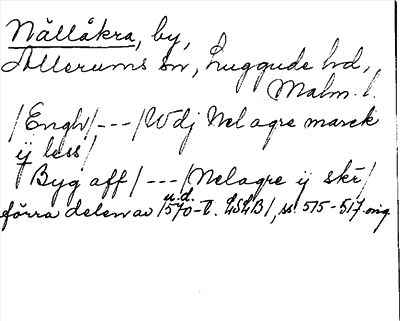 Nällåkra, by,
Allerums sn, Luggude hd,
Malm. l.
/Engh/ --- /Wdj Nelagre marck
ij less/
/Byg aff/ --- /Nelagre ij skr/
u.d.
förra delen av 1570-t. LSLB/, ss. 515-517 orig.